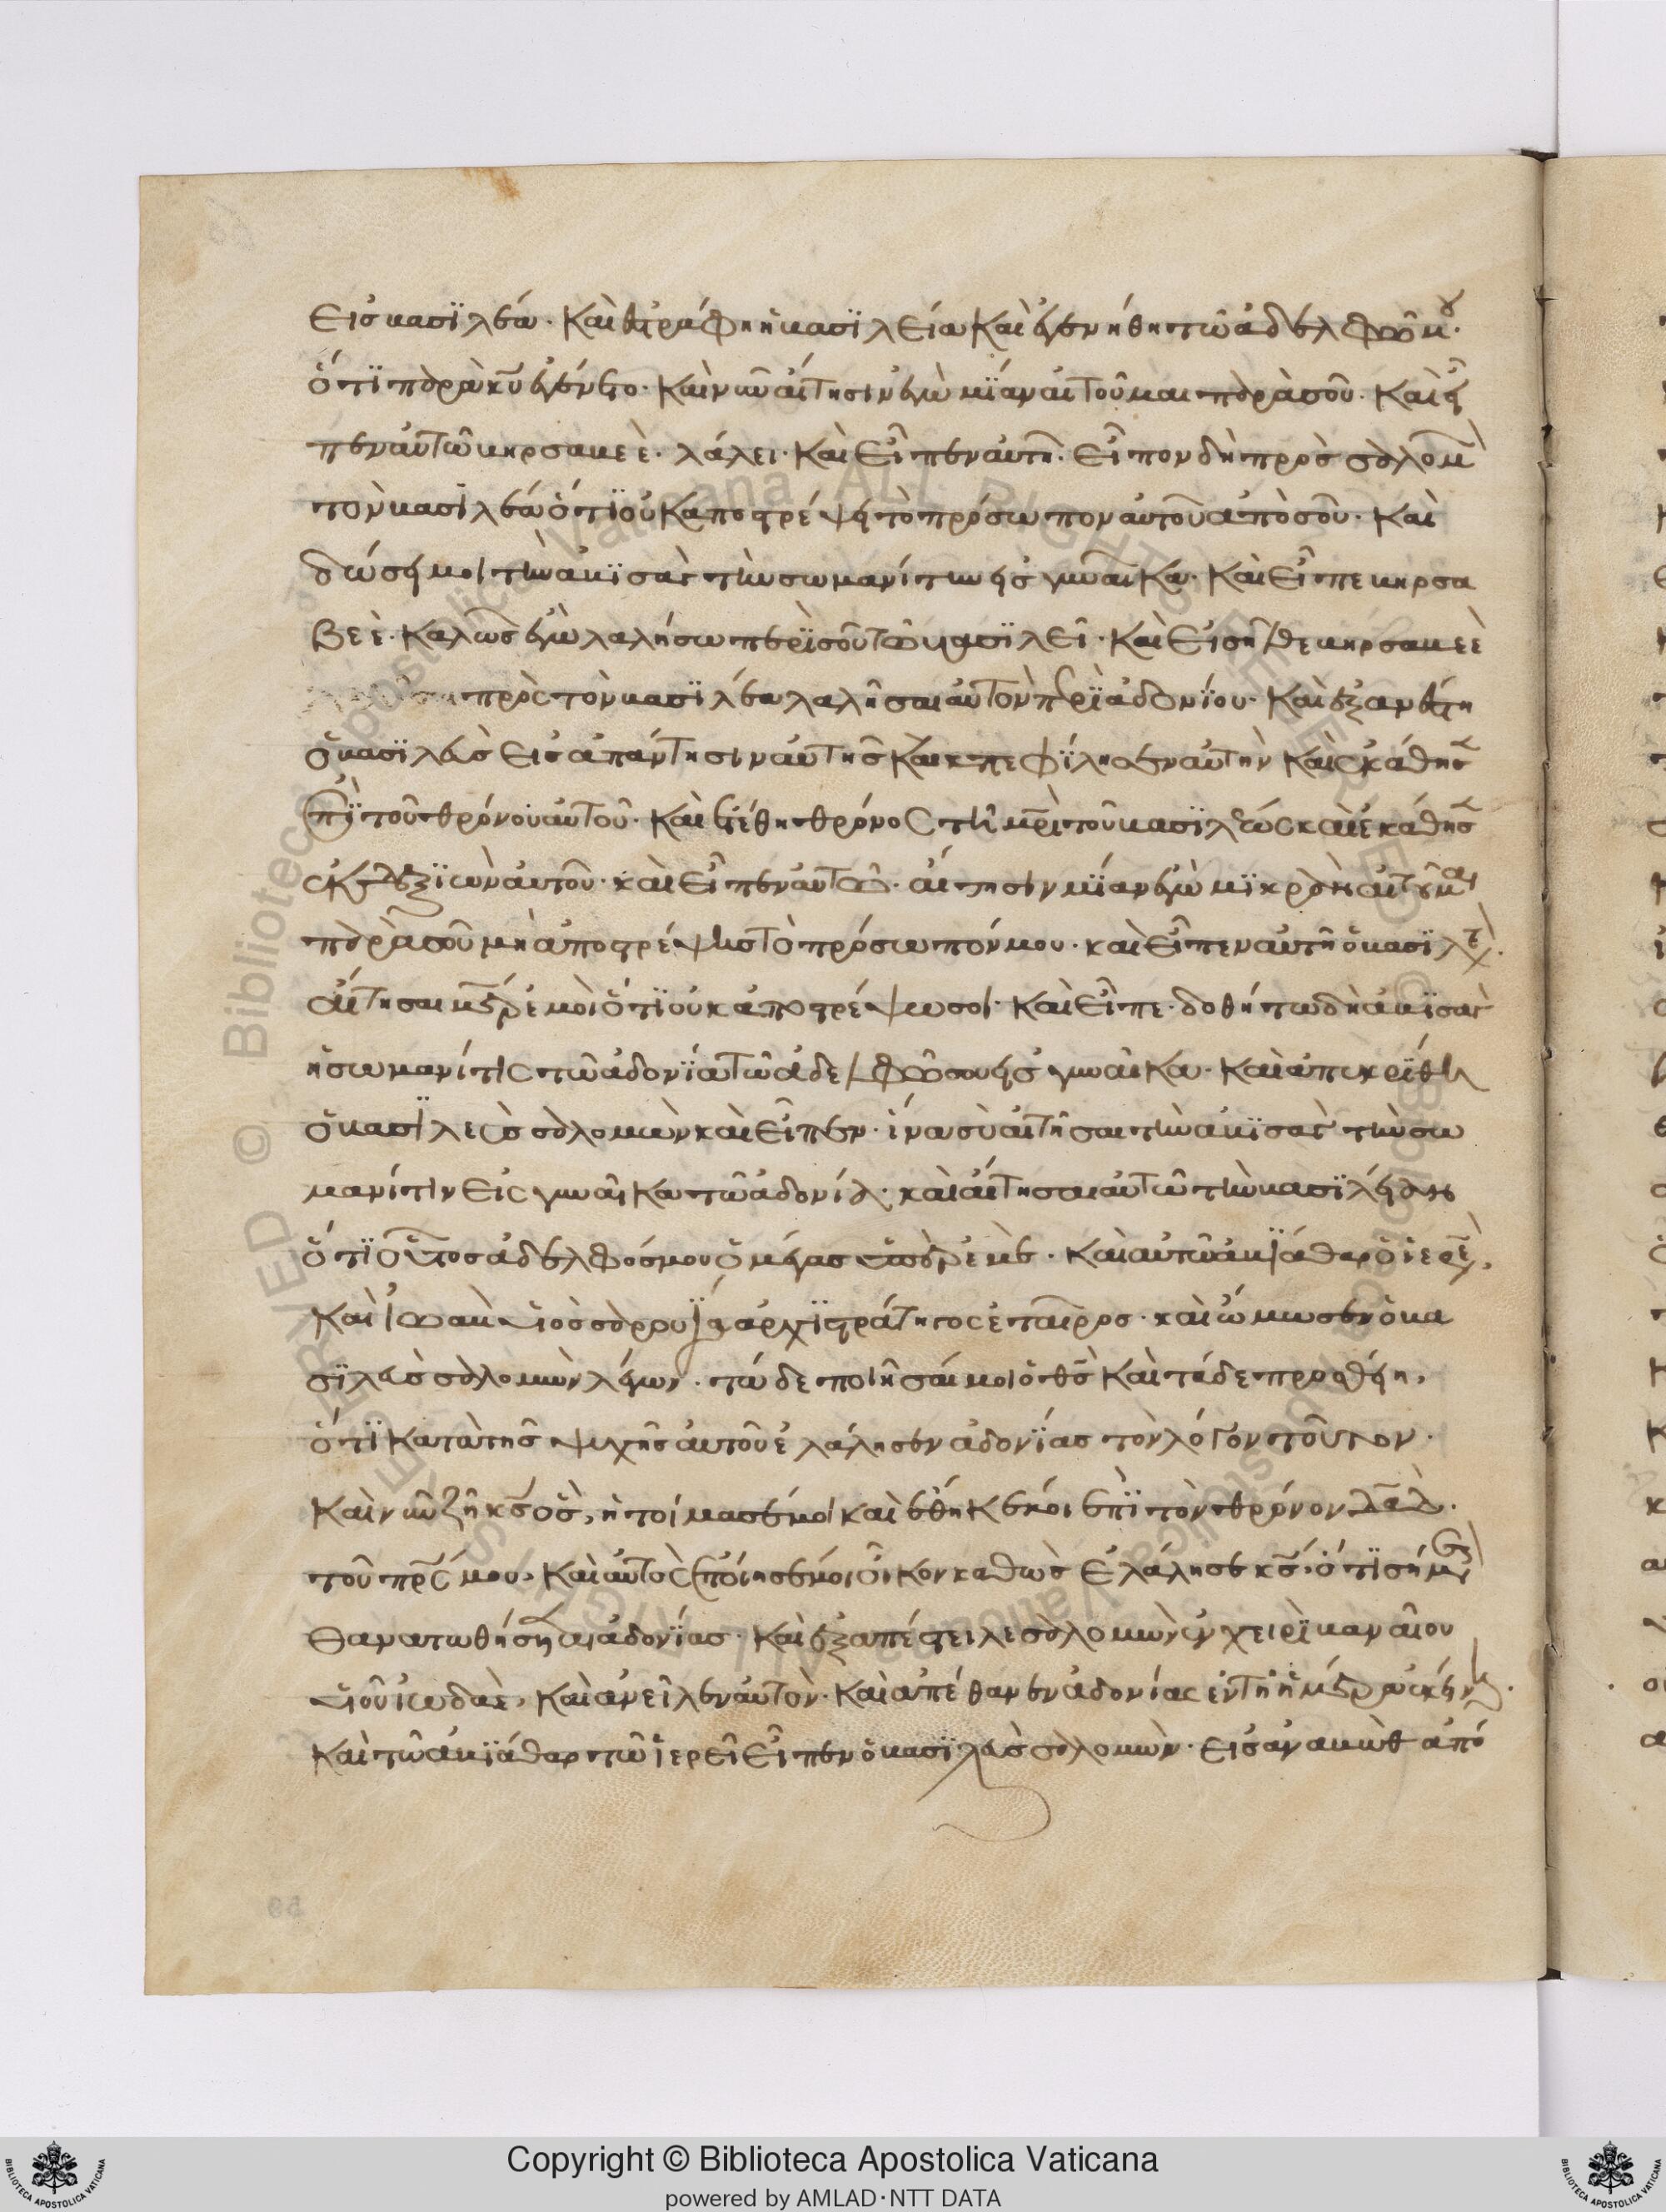 εἰς βασϊλέα· Καὶ ἐστράφη ἡ βασϊλεία Καὶ ἐγενήθη τῶ ἀδελφῶ μου·
ὅτϊ παρὰ κυ ἐγένετο· Καὶ νῦν αἴτησιν ἐγὼ μϊὰν αἰτοῦμαι παρὰ σοῦ· Καὶ εἶ
πεν αὐτῶ βηρσαβεὲ· λάλει· Καὶ εἶπεν αὐτῆ· εἶπον δὴ πρὸς σολομ
τὸν βασιλέα ὅτϊ οὐκ ἀποστρέψει τὸ πρόσωπον αὐτοῦ ἀπὸ σοῦ· Καὶ
δώσει μοι τὴν ἀβϊσὰκ τὴν σωμανίτην εἰς γυναῖκα· Καὶ εἶπε βηρσα
βεὲ· Καλῶς ἐγὼ λαλήσω περϊ σοῦ τῶ βασϊλεῖ· Καὶ εἰσῆλθε βηρσαβεὲ
πρὸς τὸν βασϊλέα λαλῆσαι αὐτὸν περϊ ἀδονΐου· Καὶ ἐξανέστη
ὁ βασϊλεὺς εἰς ἀπάντησιν αὐτῆς Καὶ κατεφϊλησεν αὐτὴν Καὶ ἐκάθησεν
ἐπϊ τοῦ θρόνου αὐτοῦ· Καὶ ἐτέθη θρόνος τῆ μρι τοῦ βασϊλέως καὶ ἐκάθησεν
ἐκ δεξϊῶν αὐτοῦ· καὶ εἶπεν αὐτῶ· αἴτησιν μϊαν ἐγὼ μϊκρὰν αἰτοῦμαι
παρὰ σοῦ μὴ ἀποστρέψης τὸ πρόσωπόν μου· καὶ εἶπεν αὐτῆ ὁ βασϊλεὺς·
αἴτησαι μερ ἐμοὶ ὅτϊ οὐκ ἀποστρέψω σοι· Καὶ εἶπε· δοθήτω δὴ ἀβϊσὰκ
ἡ σωμανίτις τῶ ἀδονϊα τῶ ἀδελφῶ σου εἰς γυναῖκα· Καὶ ἀπεκρϊθη
ὁ βασϊλεὺς σολομὼν καὶ εἶπεν· ἵνα σὺ αἰτῆσαι τὴν ἀβϊσὰκ τὴν σω
μανίτιν εἰς γυναῖκα τῶ ἀδονία· καὶ αἴτησαι αὐτῶ τὴν βασϊλείαν
ὅτϊ οὗτος ἀδελφός μου ὁ μέγας ὑπὲρ ἐμὲ· Καὶ αὐτῶ ἀβϊάθαρ ὁ ἱερεὺς,
Καὶ ἰωὰβ υἱὸς σαρουϊα ἀρχϊστράτηγος ἑταῖρος· καὶ ὤμωσεν ὁ βα
σϊλεὺς σολομὼν λέγων· τάδε ποιῆσαί μοι ὁ θς Καὶ τάδε προσθείη,
ὅτϊ Κατὰ τῆς ψυχῆς αὐτοῦ ἐλάλησεν ἀδονϊας τὸν λόγον τοῦτον·
Καὶ νῦν ζῆ κς ὃς, ἡτοίμασέ μοι καὶ ἔθηκέ με ἐπϊ τὸν θρόνον δαδ·
τοῦ πρς μου, Καὶ αὐτὸς ἐποίησέ μοι οἶκον καθὼς ἐλάλησε κς· ὅτϊ σήμερον
θανατωθήσεται ἀδονϊας· Καὶ ἐξαπέστειλε σολομὼν ἐν χειρϊ βαναῖου
υἱοῦ ἰωδαὲ, Καὶ ἀνεῖλεν αὐτὸν· Καὶ ἀπέθανεν ἀδονίας ἐν τῆ ἡμέρα ἐκείνη·
Καὶ τῶ ἀβϊάθαρ τῶ ἱερεῖ εἶπεν ὁ βασϊλεὺς σολομὼν· εἰς ἀναμὼθ ἀπό
Copyright © Biblioteca Apostolica Vaticana
powered by AMLAD·NTT DATA